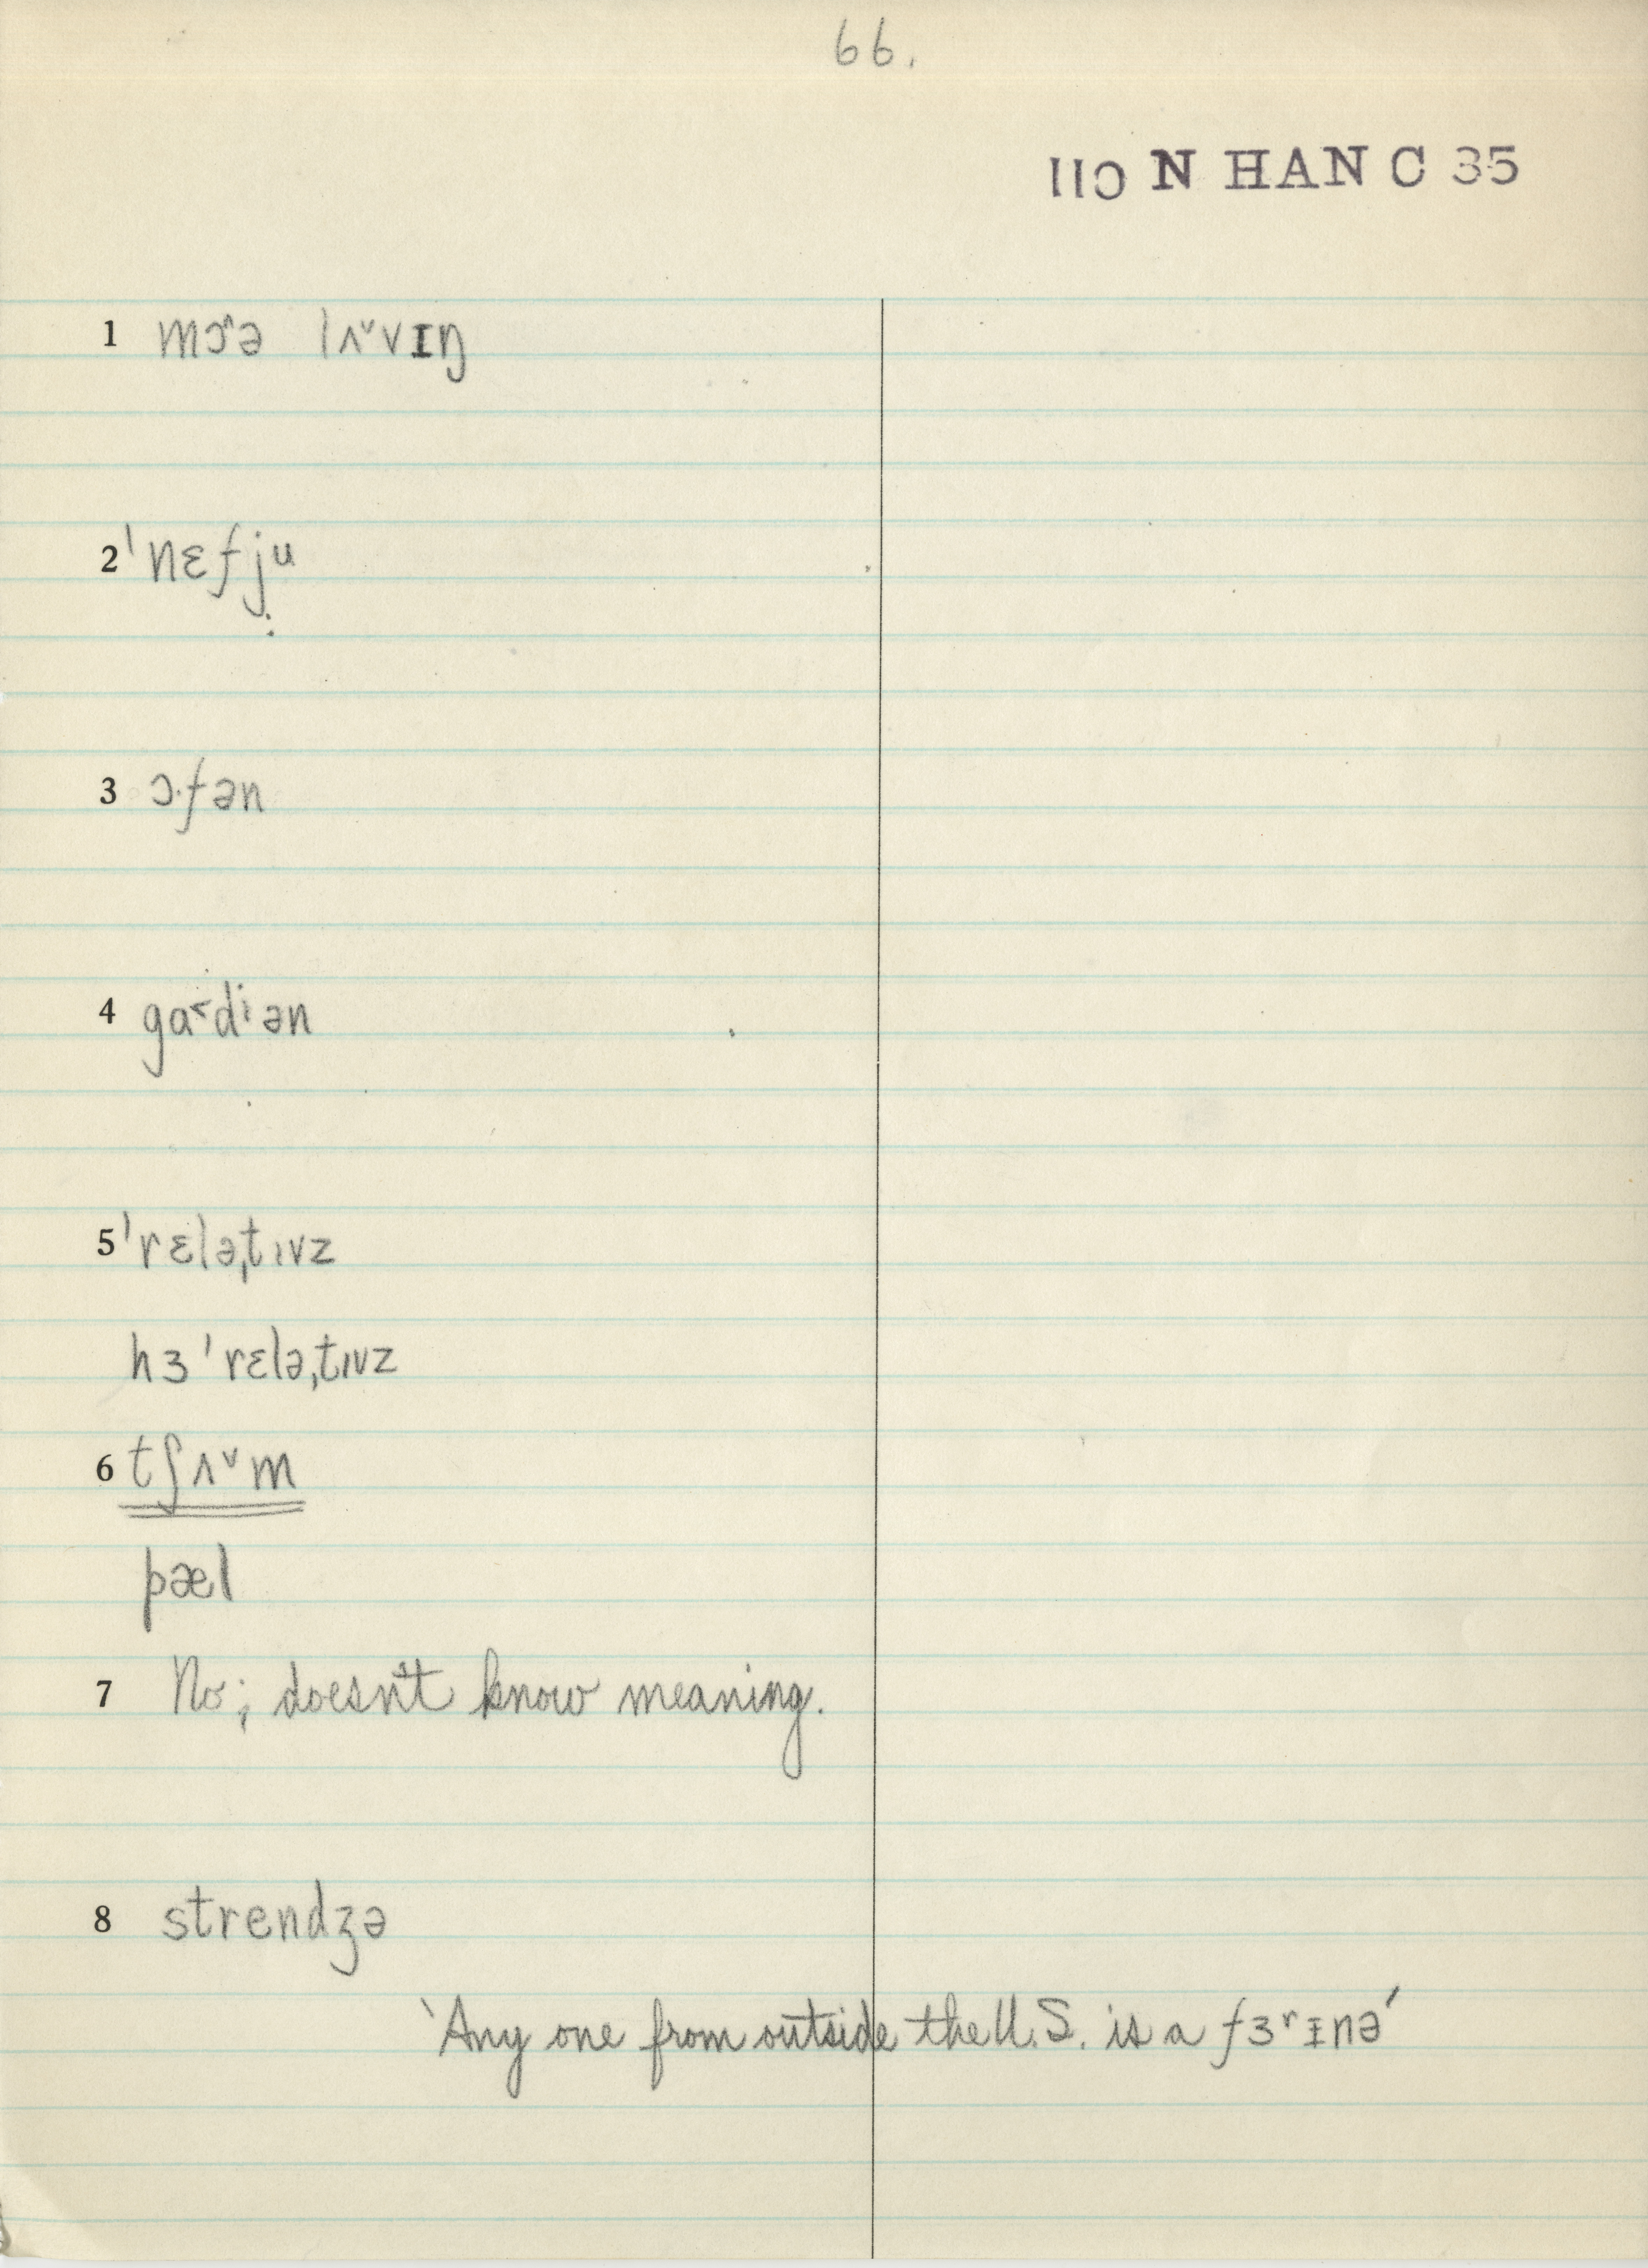 66.
110 N HAN C 35
1 mɔ˞ə lʌ˅vɪŋ
2 ˈnɛfjᵘ
3 ɔ·fən
4 gɑ˂dⁱən
5 ˈrɛləˌtɪvz
hɜ ˈrɛləˌtɪvz
6 tʃʌ˅m
pæl
7 No; doesn't know meaning.
8 strendʒə
'Any one from outside the U.S. is a fɜʳɪnə'